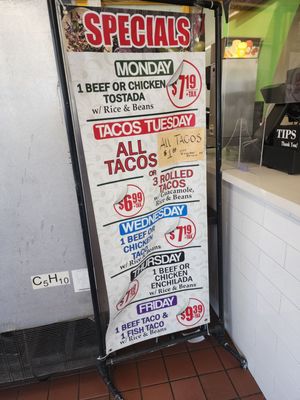 SPECIALS
MONDAY
1 BEEF OR CHICKEN
TOSTADA
w/ Rice & Beans
$7.19
+TAX
TACOS TUESDAY
ALL
TACOS
ALL TACOS
OR
3 ROLLED
TACOS
w/ Guacamole,
Rice & Beans
$6.99
+TAX
WEDNESDAY
1 BEEF OR
CHICKEN
w/ Rice & Beans
$7.19
+TAX
THURSDAY
1 BEEF OR
CHICKEN
ENCHILADA
w/ Rice & Beans
$7.19
FRIDAY
1 BEEF TACO &
1 FISH TACO
w/ Rice & Beans
$9.39
C5H10
TIPS
Thank You!